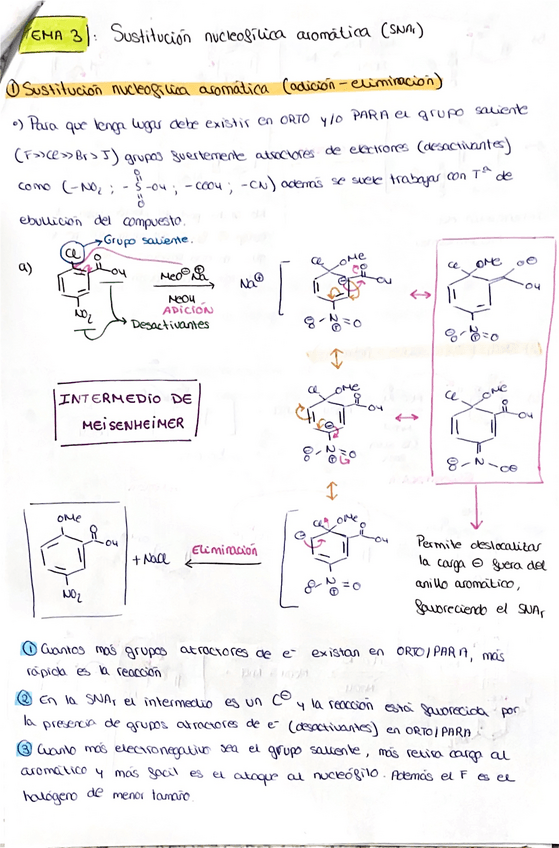 TEMA 3: Sustitución nucleofílica aromática (SNAr)
① Sustitución nucleofílica aromática (adición-eliminación)
•) Para que tenga lugar debe existir en ORTO y/o PARA el grupo saliente
(F>>Cl>>Br>I) grupos fuertemente atractores de electrones (desactivantes)
como (-NO₂ ; -S-OH ; -COOH ; -CN) además se suele trabajar con Tª de
O
O
ebullición del compuesto.
Grupo saliente.
a)
Cl
O
OH
NO₂
Desactivantes
MeO⊖Na⊕
MeOH
ADICIÓN
Na⊕
Cl OMe O OH
⊖O-N=O
⊕
Cl OMe O⊖
OH
⊖O-N=O
⊕
INTERMEDIO DE
MEISENHEIMER
Cl OMe O OH
⊖O-N=O
⊕
Cl OMe O OH
⊖O-N-O⊖
⊕
OMe O OH
NO₂
+ NaCl
Eliminación
Cl OMe O OH
⊖O-N=O
⊕
Permite deslocalizar
la carga ⊖ fuera del
anillo aromático,
favoreciendo el SNAr
① Cuantos más grupos atractores de e⁻ existan en ORTO/PARA, más
rápida es la reacción
② En la SNAr el intermedio es un C⊖ y la reacción está favorecida por
la presencia de grupos atractores de e⁻ (desactivantes) en ORTO/PARA.
③ Cuanto más electronegativo sea el grupo saliente, más retira carga al
aromático y más fácil es el ataque al nucleófilo. Además el F es el
halógeno de menor tamaño.